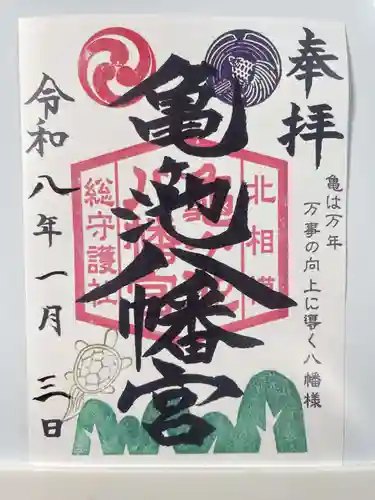 奉拝
亀は万年
万事の向上に導く八幡様
北相模
亀ヶ池
八幡宮
総守護社
亀池八幡宮
令和八年一月三日